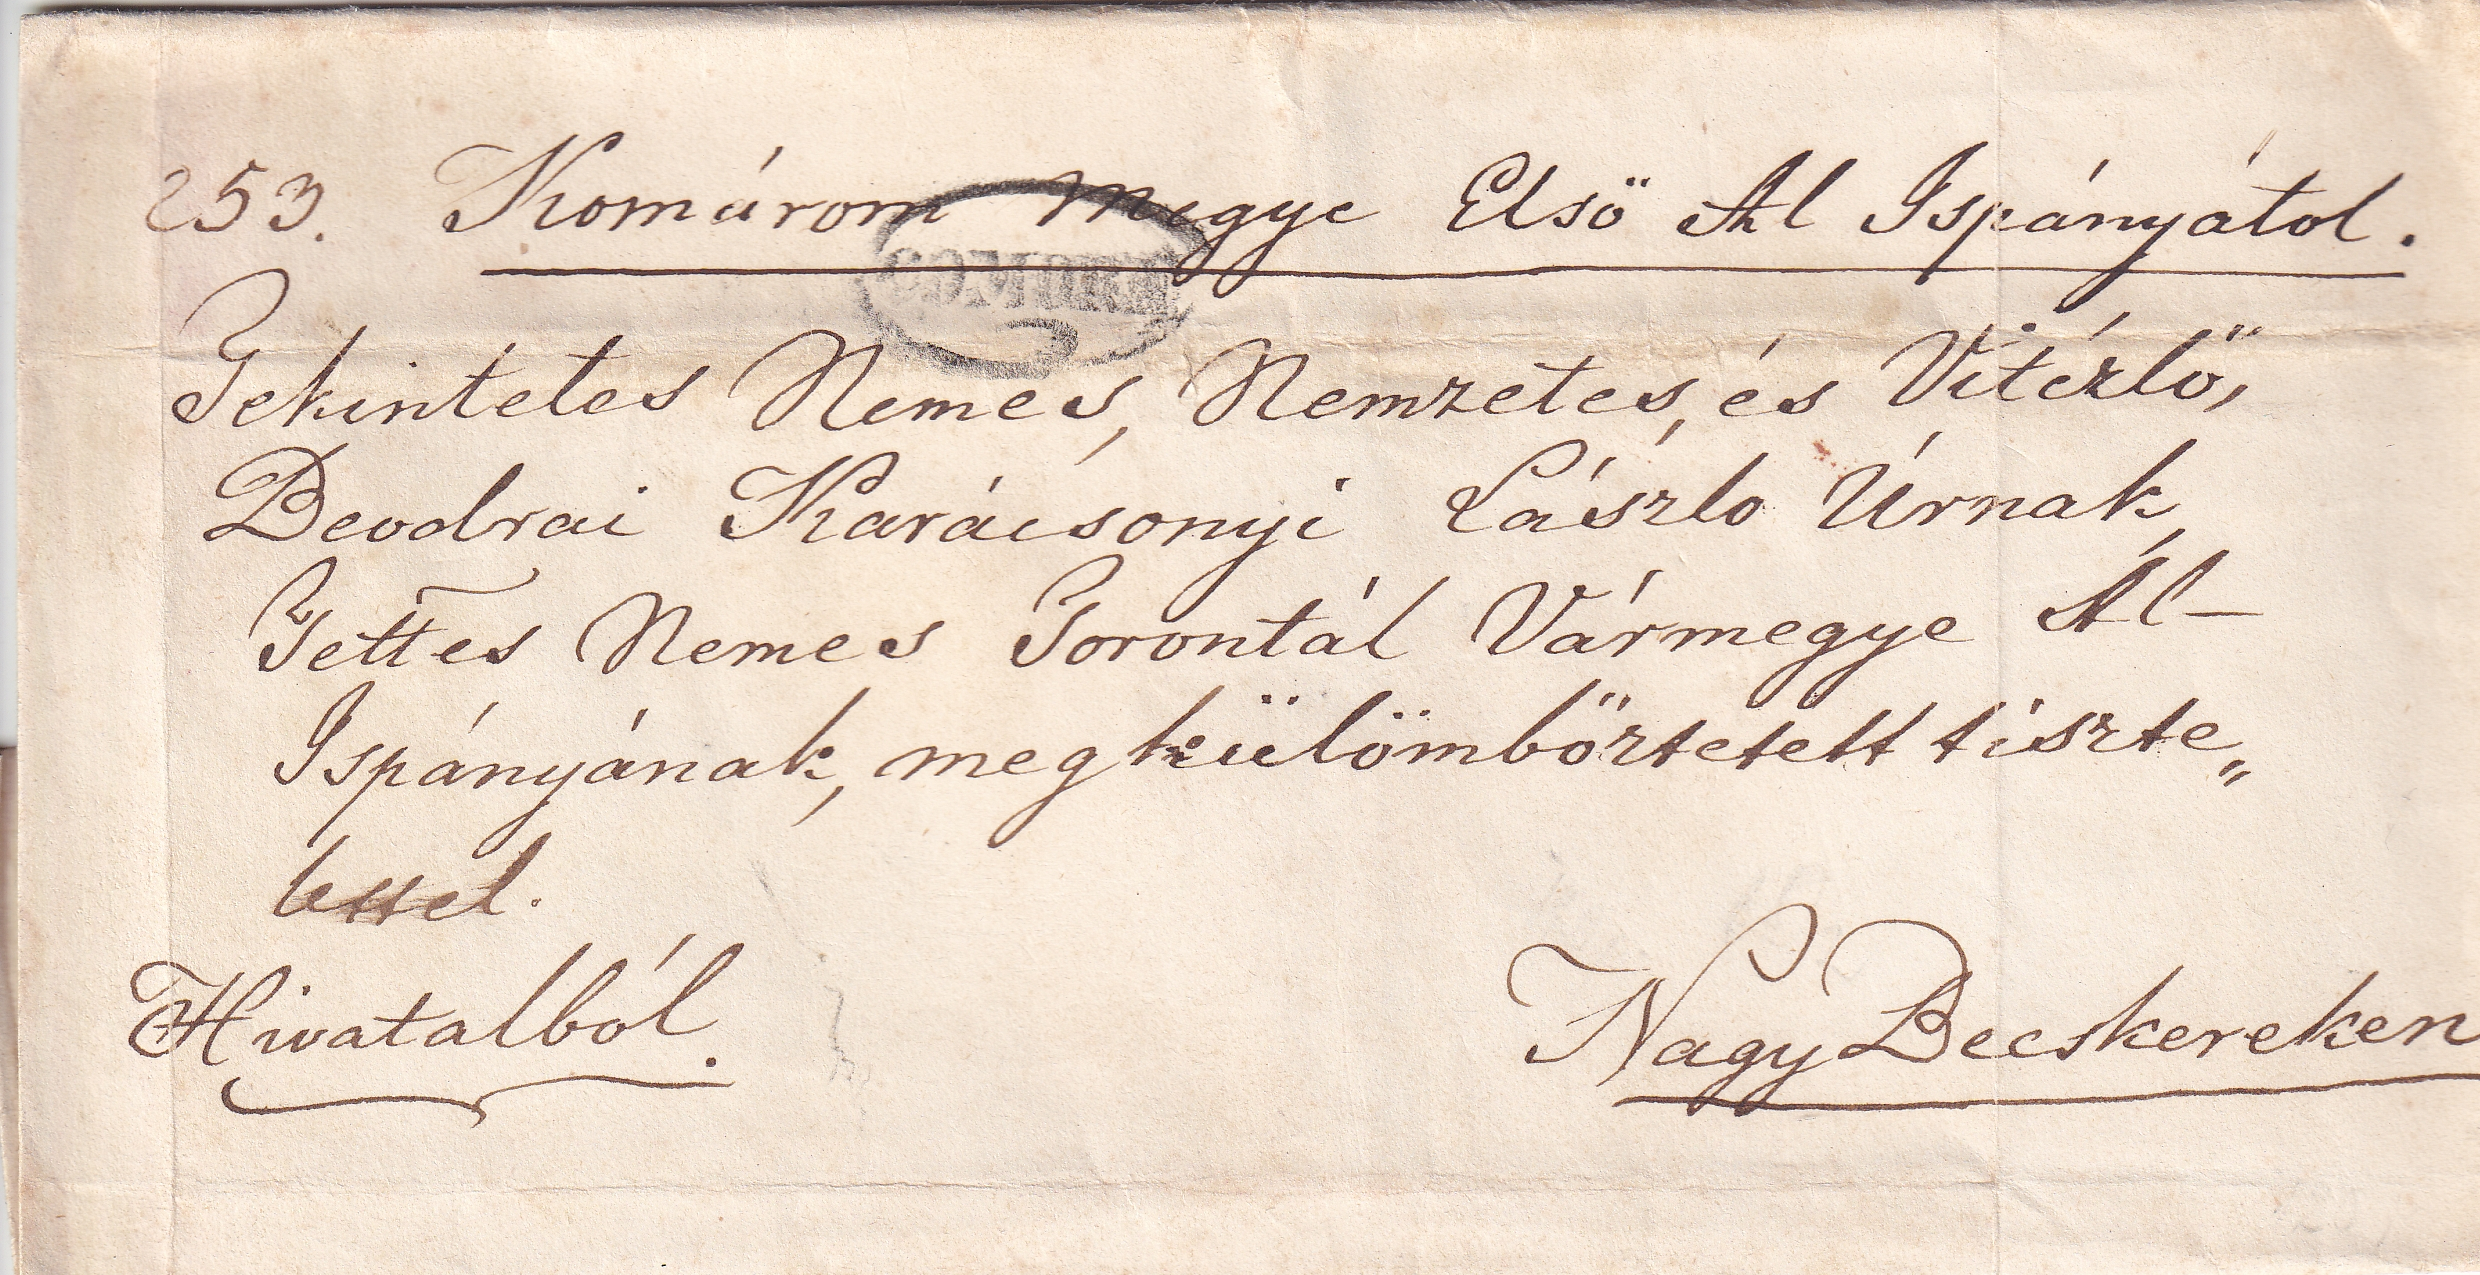 253. Komárom Megye Elsö Al Ispányátol.
COMORN
Tekintetes Nemes, Nemzetes, és Vitézlő,
Beodrai Karácsonyi László Úrnak,
Tettes Nemes Torontál Vármegye Al-
Ispányának, megkülömböztetett tiszte„
lettel.
Hivatalból.
Nagy Becskereken